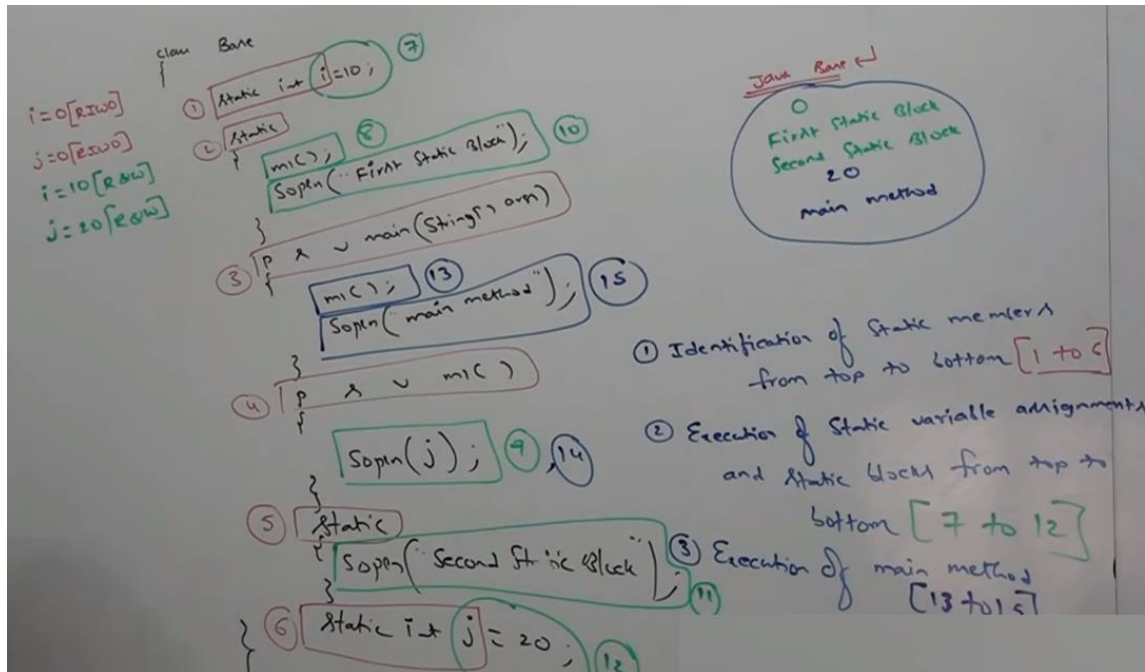 class Base
{
① Static int i=10; ⑦
② Static
{
m1(); ⑧
Sopln("First Static Block"); ⑩
}
③ P s v main(String[] args)
{
m1(); ⑬
Sopln("main method"); ⑮
}
④ P s v m1()
{
Sopln(j); ⑨, ⑭
}
⑤ Static
{
Sopln("Second Static Block"); ⑪
}
⑥ Static int j = 20; ⑫
}
i=0[RIWO]
j=0[RIWO]
i=10[R&W]
j=20[R&W]
Java Base ↵
0
First Static Block
Second Static Block
20
main method
① Identification of Static members
from top to bottom [1 to 6]
② Execution of Static variable assignments
and static blocks from top to
bottom [7 to 12]
③ Execution of main method
[13 to 15]